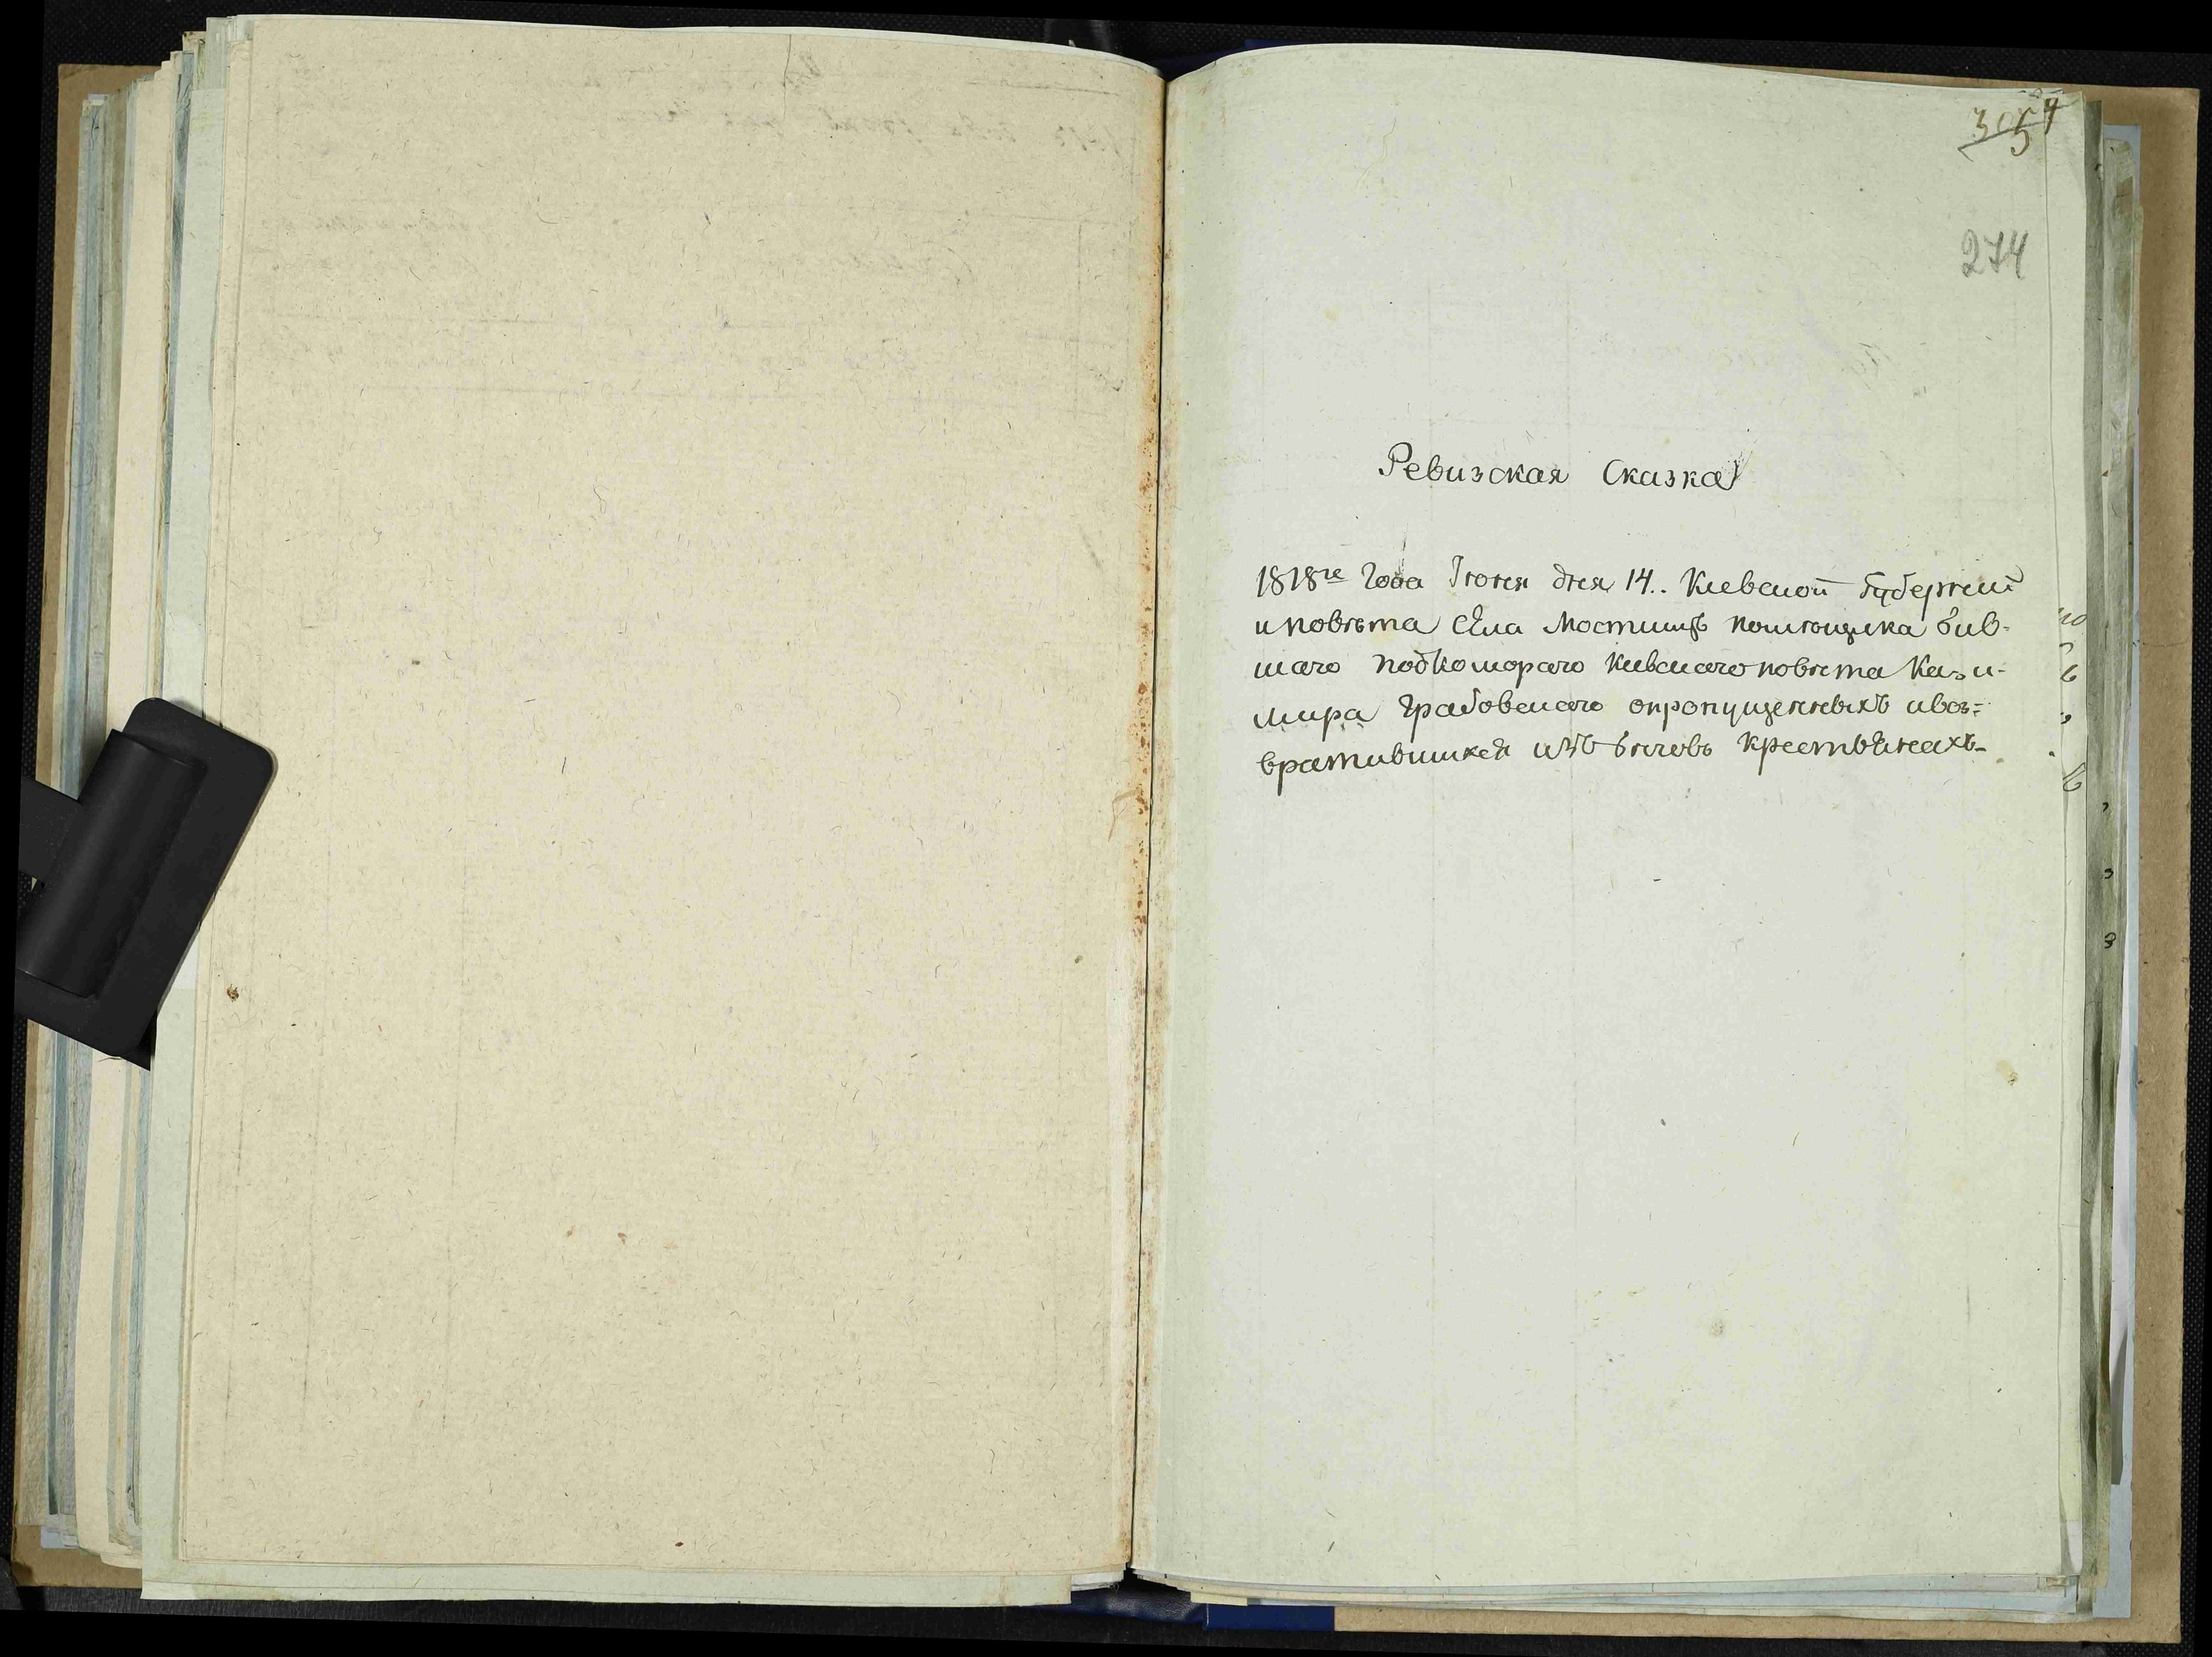 274
Ревизская Сказка
1818го года Іюня дня 14.. Киевской Губерніи
и повѣта села Мостищъ помѣщика бив-
шаго подкомораго Киевскаго повѣта Кази-
мира Грабовскаго опропущенныхъ ивоз=
вратившихся изъ бѣговъ крестьянахъ-